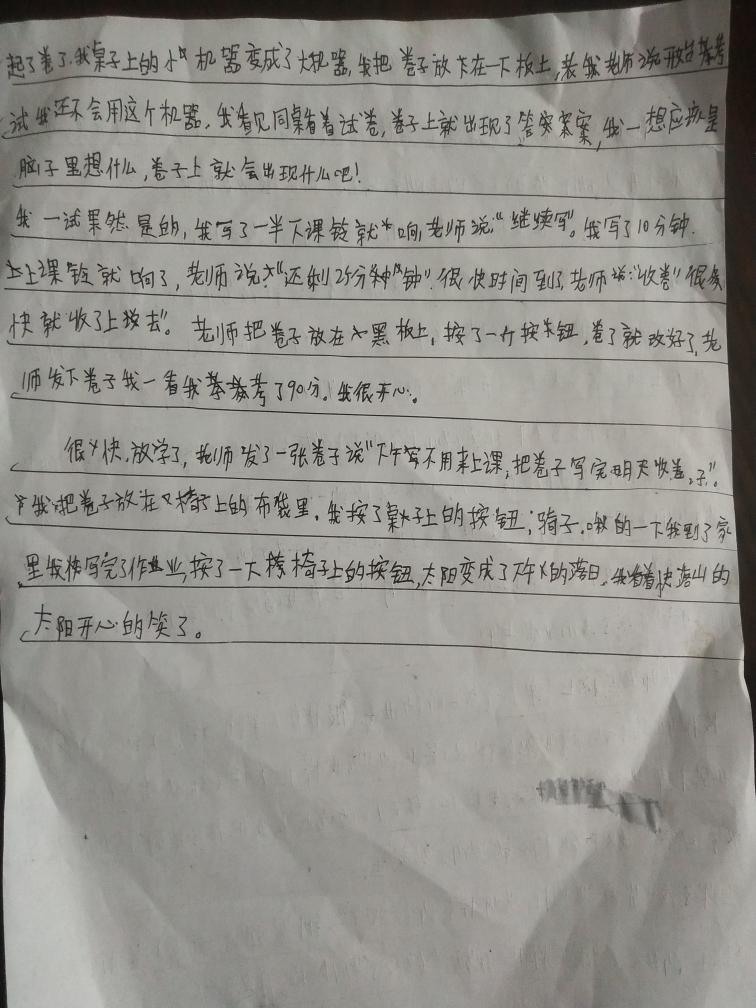 起了卷了,我桌子上的小机器变成了大机器,我把卷子放在一下板上,老师说开始考
试我还不会用这个机器,我看见同桌看着试卷,卷子上就出现了答案,我一想应该是
脑子里想什么,卷子上就会出现什么吧!
我一试果然是的,我写了一半下课铃就响,老师说:“继续写”。我写了10分钟.
上课铃就响了,老师说:“还剩25分钟”.很快时间到了,老师说:“收卷”很
快就收了上去”。老师把卷子放在黑板上,按了一个按钮,卷了就改好了,老
师发下卷子我一看我考了90分。我很开心。
很快,放学了,老师发了一张卷子说“下午不用来上课,把卷子写完明天收卷子”。
我把卷子放在椅子上的布袋里,我按了桌子上的按钮;骑子.嗽的一下我到了家
里我快写完了作业,按了一下椅子上的按钮,太阳变成了下午的落日,我看着快落山的
太阳开心的笑了。